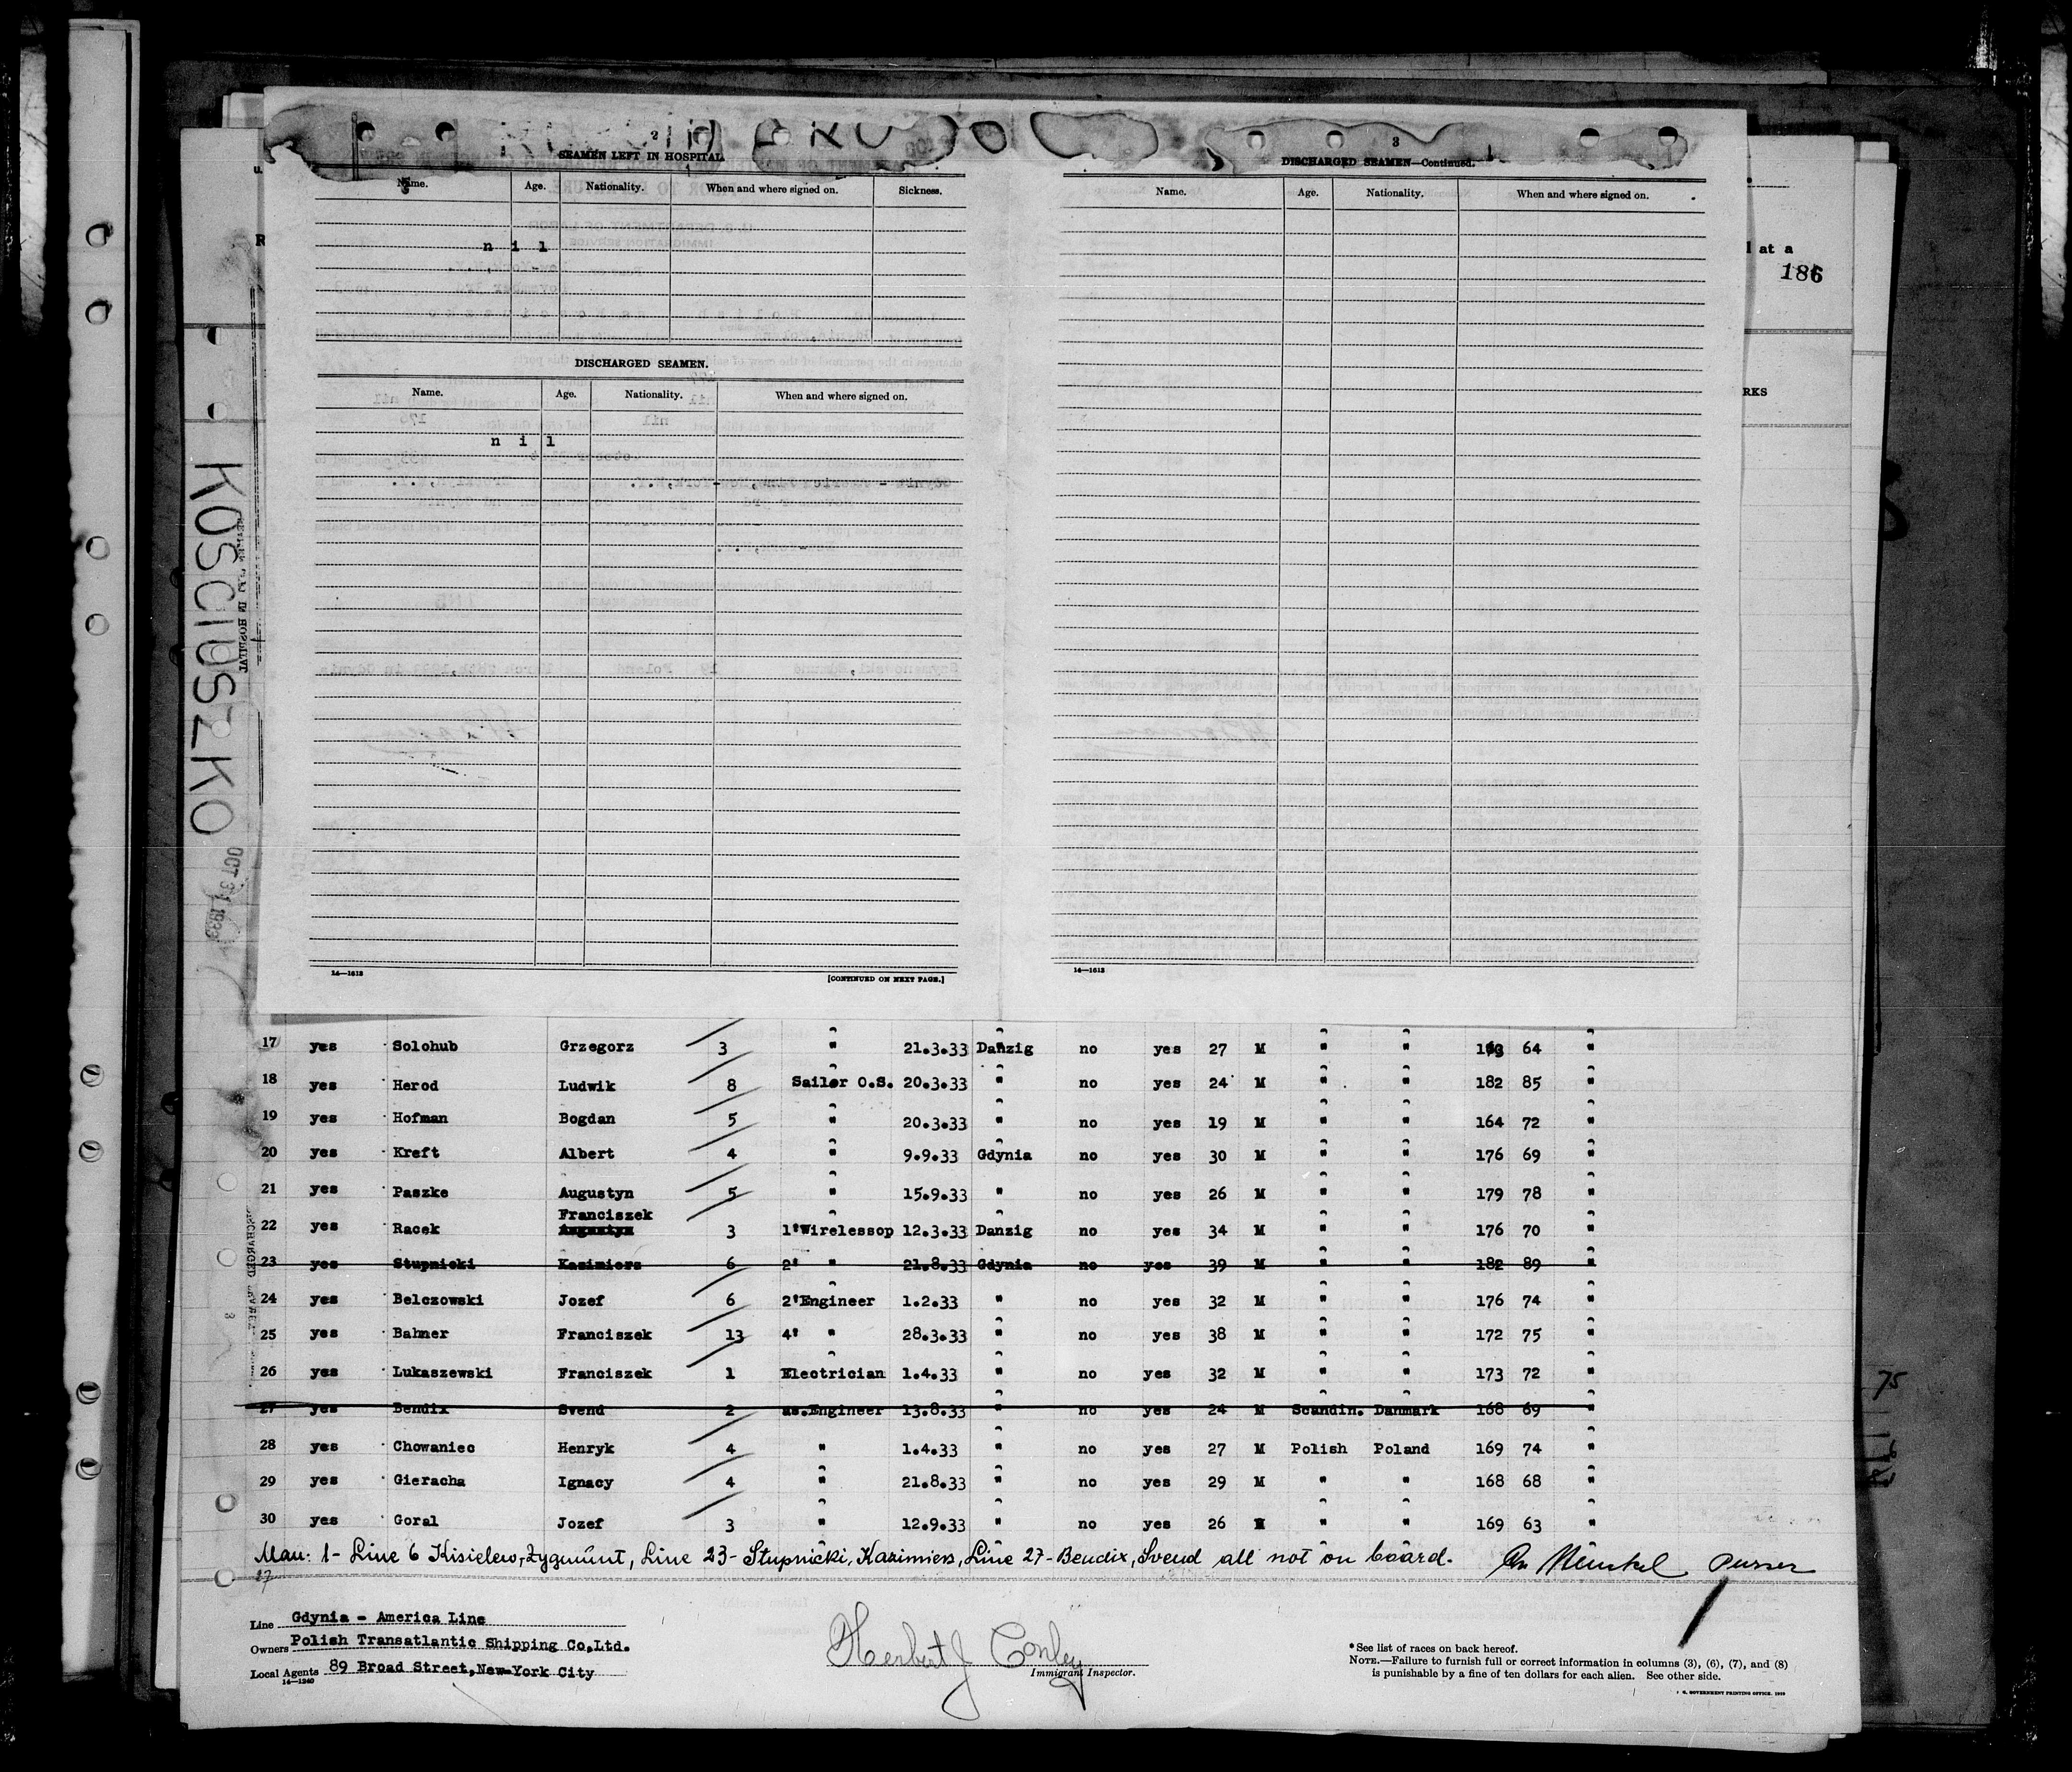 2
SEAMEN LEFT IN HOSPITAL.
Name. Age. Nationality. When and where signed on. Sickness.
n i l
DISCHARGED SEAMEN.
Name. Age. Nationality. When and where signed on.
n i l
14—1613
[CONTINUED ON NEXT PAGE.]
3
DISCHARGED SEAMEN—Continued.
Name. Age. Nationality. When and where signed on.
14—1613
at a
186
RKS
KOSCIUSZKO
OCT 31 1933
75
17 yes Solohub Grzegorz 3 " 21.3.33 Danzig no yes 27 M " " 64 "
18 yes Herod Ludwik 8 Sailor O.S. 20.3.33 " no yes 24 M " " 182 85 "
19 yes Hofman Bogdan 5 " 20.3.33 " no yes 19 M " " 164 72 "
20 yes Kreft Albert 4 " 9.9.33 Gdynia no yes 30 M " " 176 69 "
21 yes Paszke Augustyn 5 " 15.9.33 " no yes 26 M " " 179 78 "
Franciszek
22 yes Racek Augustyn 3 1'Wirelessop 12.3.33 Danzig no yes 34 M " " 176 70 "
23 yes Stupnicki Kazimierz 6 2' " 21.8.33 Gdynia no yes 39 M " " 182 89 "
24 yes Belczowski Jozef 6 2'Engineer 1.2.33 " no yes 32 M " " 176 74 "
25 yes Bahner Franciszek 13 4' " 28.3.33 " no yes 38 M " " 172 75 "
26 yes Lukaszewski Franciszek 1 Electrician 1.4.33 " no yes 32 M " " 173 72 "
27 yes Bendix Svend 2 as.Engineer 13.8.33 " no yes 24 M Scandin. Danmark 168 69 "
28 yes Chowaniec Henryk 4 " 1.4.33 " no yes 27 M Polish Poland 169 74 "
29 yes Gieracha Ignacy 4 " 21.8.33 " no yes 29 M " " 168 68 "
30 yes Goral Jozef 3 " 12.9.33 " no yes 26 M " " 169 63 "
Man: 1- Line 6 Kisielew, Zygmunt, Line 23- Stupnicki, Kazimierz, Line 27- Bendix, Svend all not on board. Purser
27
Line Gdynia - America Line
Owners Polish Transatlantic Shipping Co,Ltd.
Local Agents 89 Broad Street,New-York City
14—1240
Herbert J Conley
Immigrant Inspector.
* See list of races on back hereof.
NOTE.—Failure to furnish full or correct information in columns (3), (6), (7), and (8)
is punishable by a fine of ten dollars for each alien. See other side.
GOVERNMENT PRINTING OFFICE